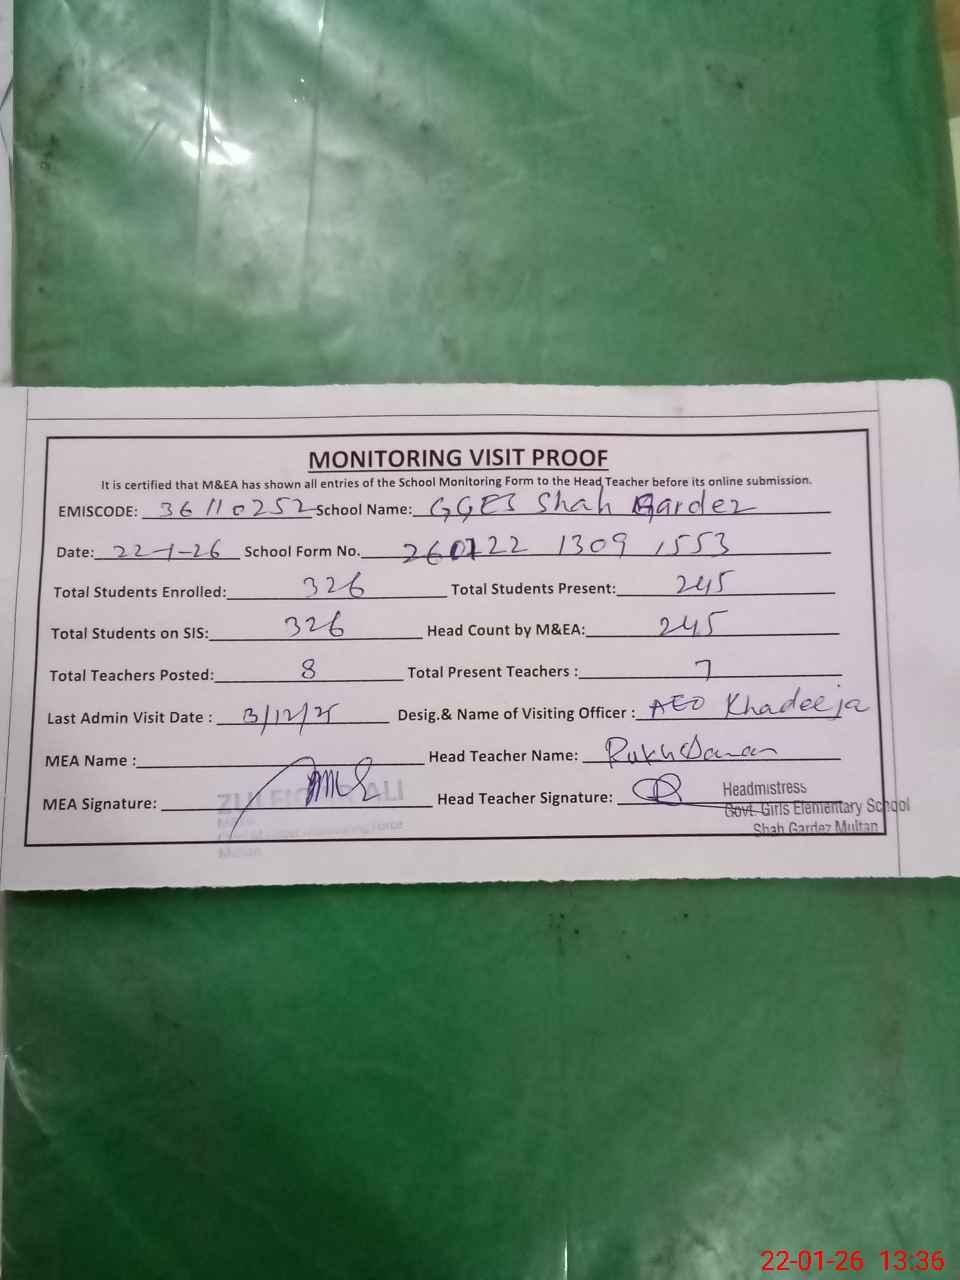 MONITORING VISIT PROOF
It is certified that M&EA has shown all entries of the School Monitoring Form to the Head Teacher before its online submission.
EMISCODE: 36110252 School Name: GGES Shah Gardez
Date: 22-1-26 School Form No. 260122 1309 1553
Total Students Enrolled: 326 Total Students Present: 245
Total Students on SIS: 326 Head Count by M&EA: 245
Total Teachers Posted: 8 Total Present Teachers : 7
Last Admin Visit Date : 13/12/25 Desig.& Name of Visiting Officer : AEO Khadeeja
MEA Name : Head Teacher Name: Rukhsanan
MEA Signature: Head Teacher Signature: Headmistress
Govt. Girls Elementary School
Shah Gardez Multan
Multan
22-01-26 13:36